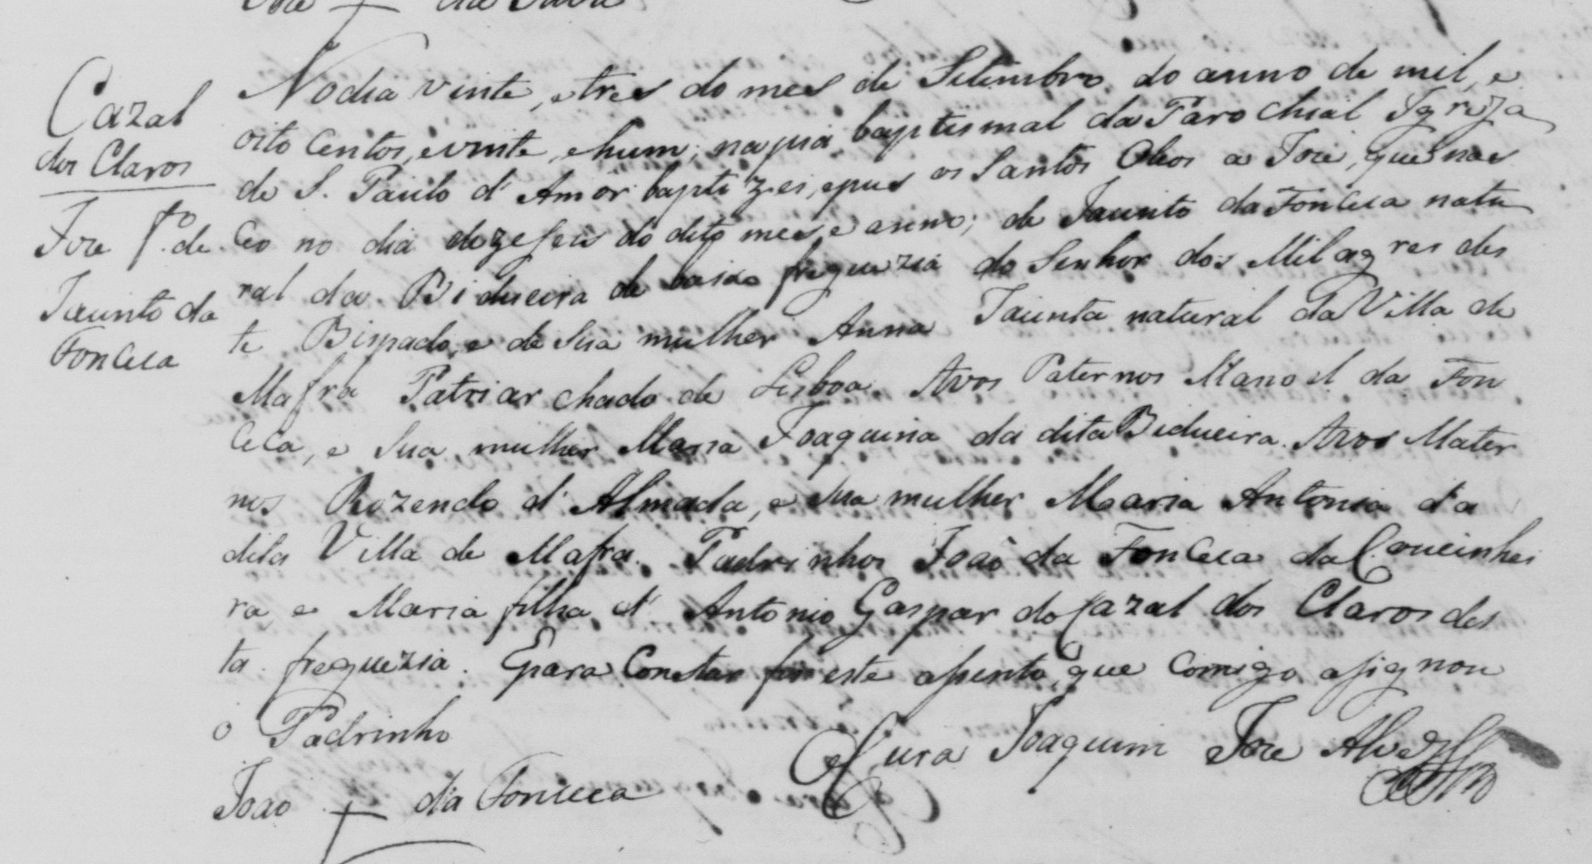 Cazal
dos Claros
Joze f.º de
Jacinto da
Fonceca
No dia vinte, e tres do mes de Setembro do anno de mil, e
oito Centos, e vinte, e hum, na pia baptismal da Parochial Igreja
de S. Paulo d'Amor baptizei, e pus os Santos Oleos a Joze, que nas
ceo no dia dezeseis do dito mes e anno; de Jacinto da Fonceca natu
ral da Bidueira de baixo freguezia do Senhor dos Milagres des
te Bispado, e de sua mulher Anna Jacinta natural da Villa de
Mafra Patriarchado de Lisboa. Avos Paternos Manoel da Fon
ceca, e sua mulher Maria Joaquina da dita Bidueira. Avos Mater
nos Rozendo d'Almada, e sua mulher Maria Antonia da
dita Villa de Mafra. Padrinhos Joaõ da Fonceca da Coucinhei
ra, e Maria filha d'Antonio Gaspar do Cazal dos Claros des
ta freguezia. E para Constar fis este asento, que comigo asignou
o Padrinho
O Cura Joaquim Joze Alvez
Joao + da Fonceca